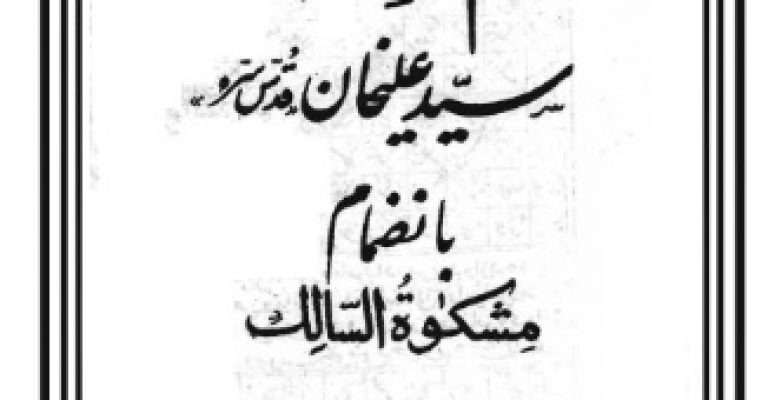 سیّد علیخان «قُدّس سرّه»
بانضمام
مِشکوٰةُ السّالِك